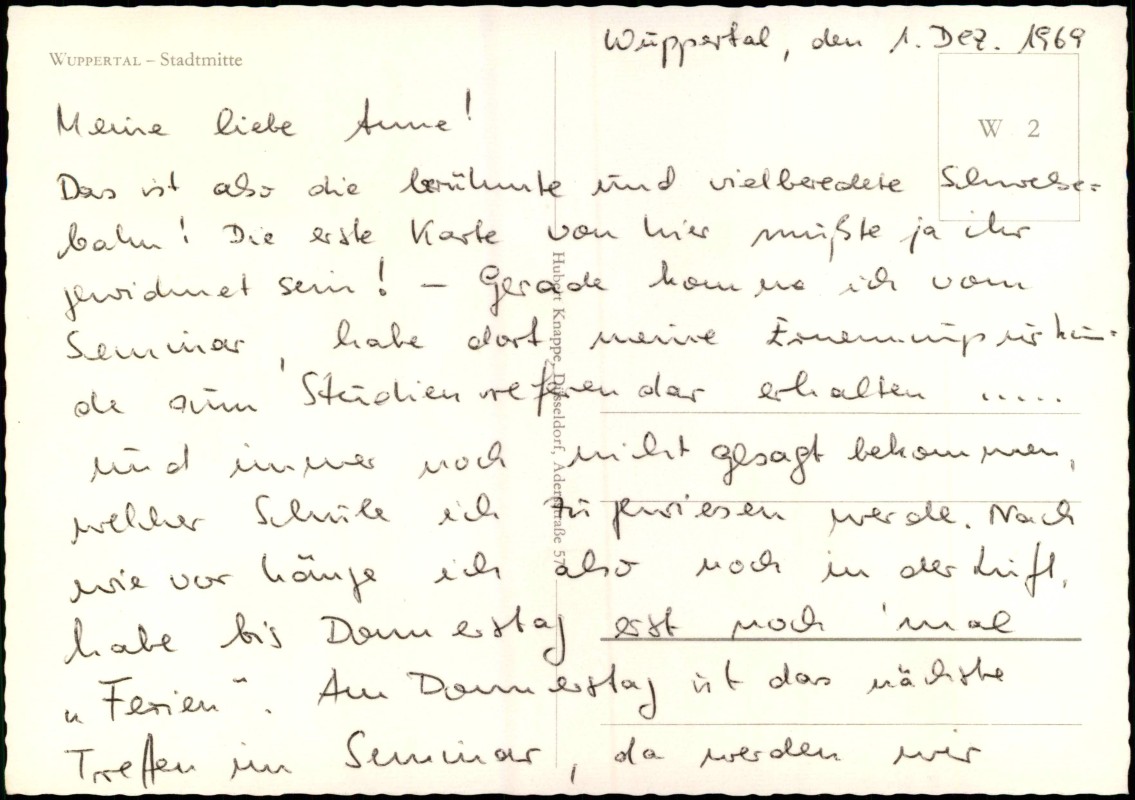 Wuppertal, den 1. Dez. 1969
WUPPERTAL – Stadtmitte
W 2
Meine liebe Anne!
Das ist also die berühmte und vielberedete Schwebe=
bahn! Die erste Karte von hier müßte ja ihr
gewidmet sein! – Gerade komme ich vom
Seminar, habe dort meine Ernennungsurkun=
de zum Studienreferendar erhalten .....
und immer noch nicht gesagt bekommen,
welcher Schule ich zugewiesen werde. Nach
wie vor hänge ich also noch in der Luft,
habe bis Donnerstag erst noch 'mal
„Ferien“. Am Donnerstag ist das nächste
Treffen im Seminar, da werden wir
Hubert Knappe, Düsseldorf, Adersstraße 57